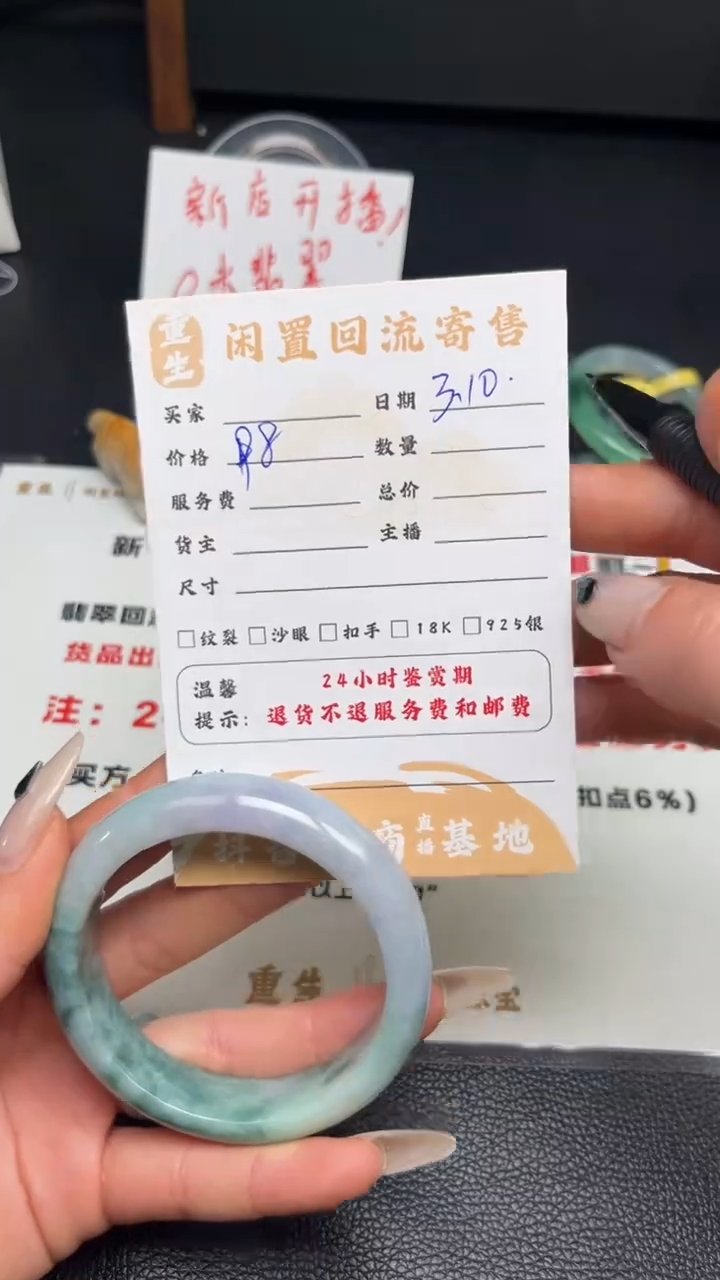 新店开播,
翡翠
重生 闲置回流寄售
买家 日期 3.10.
价格 88 数量
服务费 总价
货主 主播
尺寸
□纹裂 □沙眼 □扣手 □18K □925银
温馨提示: 24小时鉴赏期
退货不退服务费和邮费
直播基地
新
翡翠回
货品出
注: 2
买方
扣点6%)
重生